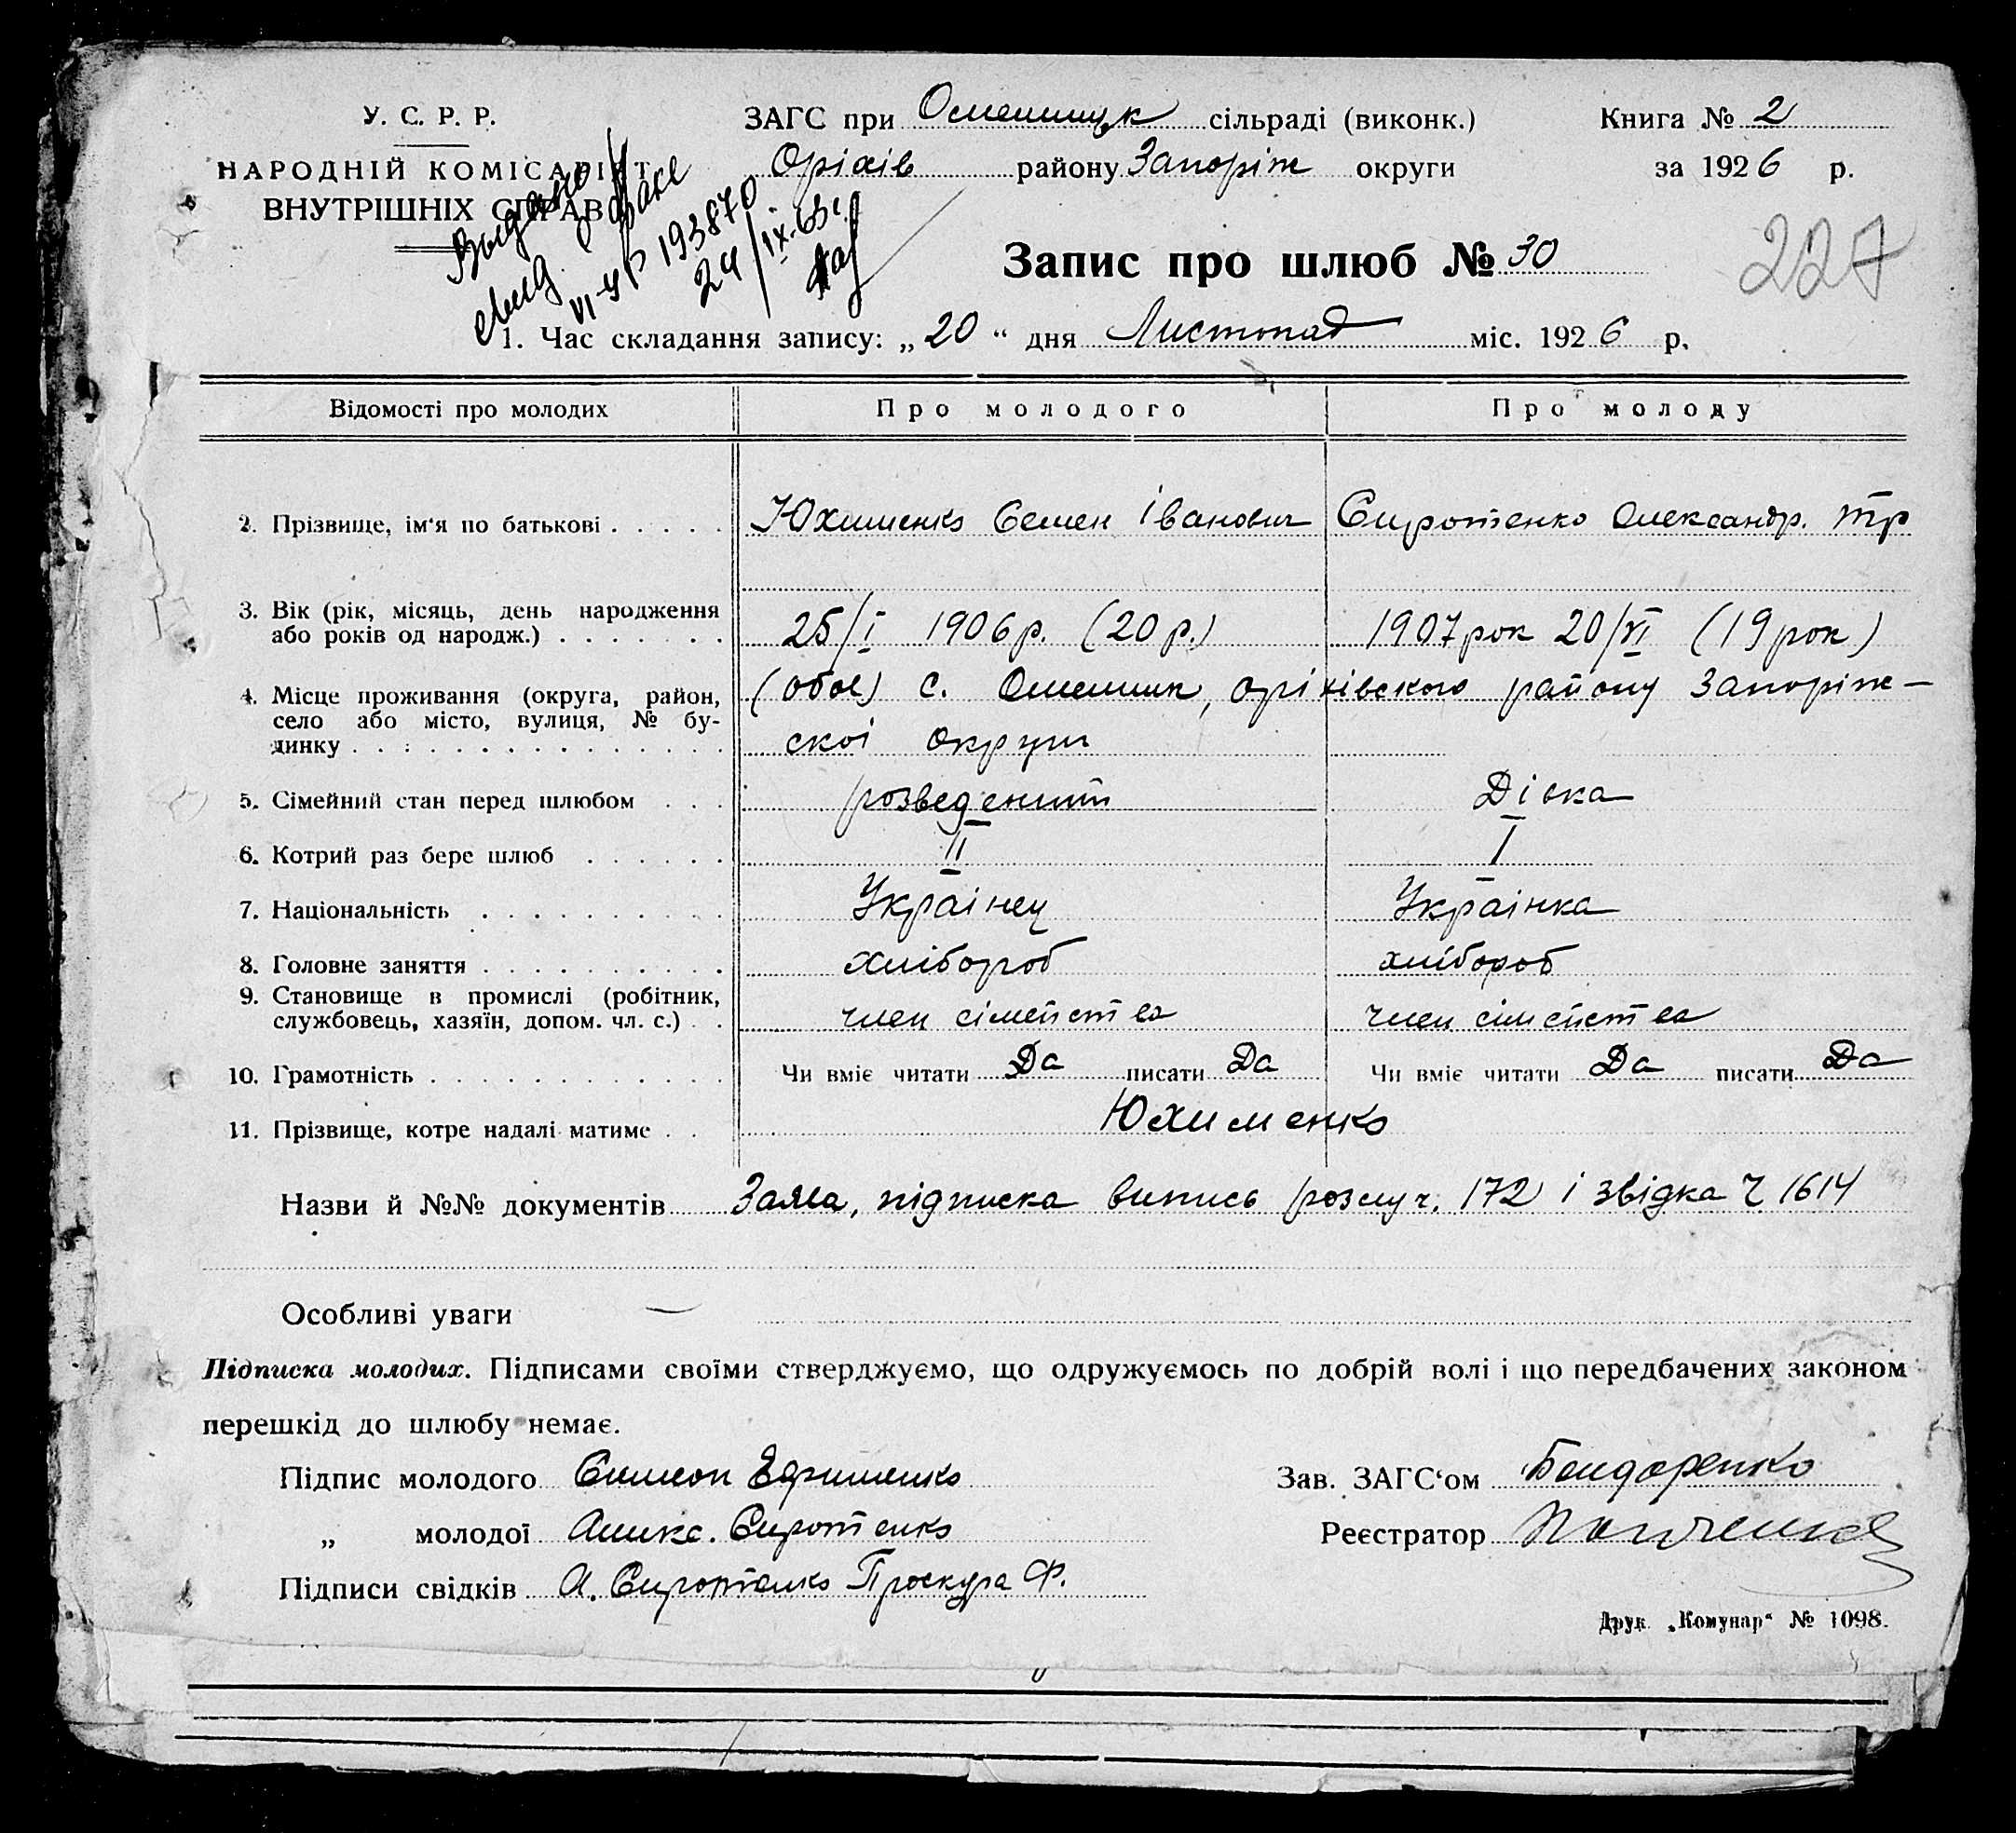 У. С. Р. Р.
НАРОДНІЙ КОМІСАРІЯТ
ВНУТРІШНІХ СПРАВ
ЗАГС при Омельницьк сільраді (виконк.)
Книга № 2
Оріхів району Запоріж округи
за 1926 р.
Выдано
свид. о браке
VI-УР 193870
24/IX-63г.
Запис про шлюб № 30
227
1. Час складання запису: „20“ дня Листопад міс. 1926 р.
Відомості про молодих
Про молодого
Про молоду
2. Прізвище, ім‘я по батькові . . . . .
Юхименко Семен Іванович
Сиротенко Олександр. Тр
3. Вік (рік, місяць, день народження
або років од народж.) . . . . . . .
25/I 1906р. (20 р.)
1907 рок 20/VI (19 рок)
4. Місце проживання (округа, район,
село або місто, вулиця, № бу-
динку . . . . . . . . . . . . . .
(обоє) с. Омельник, Оріхівского району Запоріж-
скоі Округи
5. Сімейний стан перед шлюбом . . .
розведений
Дівка
6. Котрий раз бере шлюб . . . . . .
II
I
7. Національність . . . . . . . . . .
Украінец
Украінка
8. Головне заняття . . . . . . . . . .
хлібороб
хлібороб
9. Становище в промислі (робітник,
службовець, хазяїн, допом. чл. с.) . .
член сімейства
член сімейства
10. Грамотність . . . . . . . . . . . .
Чи вміє читати Да писати Да
Чи вміє читати Да писати Да
11. Прізвище, котре надалі матиме . .
Юхименко
Назви й №№ документів Заява, підписка випись розлуч. 172 і звідка Ч 1614
Особливі уваги —
Підписка молодих. Підписами своїми стверджуємо, що одружуємось по добрій волі і що передбачених законом
перешкід до шлюбу немає.
Підпис молодого Симеон Ефименко
Зав. ЗАГС‘ом Бондаренко
„ молодої Алекс. Сиротенко
Реєстратор
Підписи свідків А. Сиротенко Проскура Ф.
Друк. „Комунар“ № 1098.